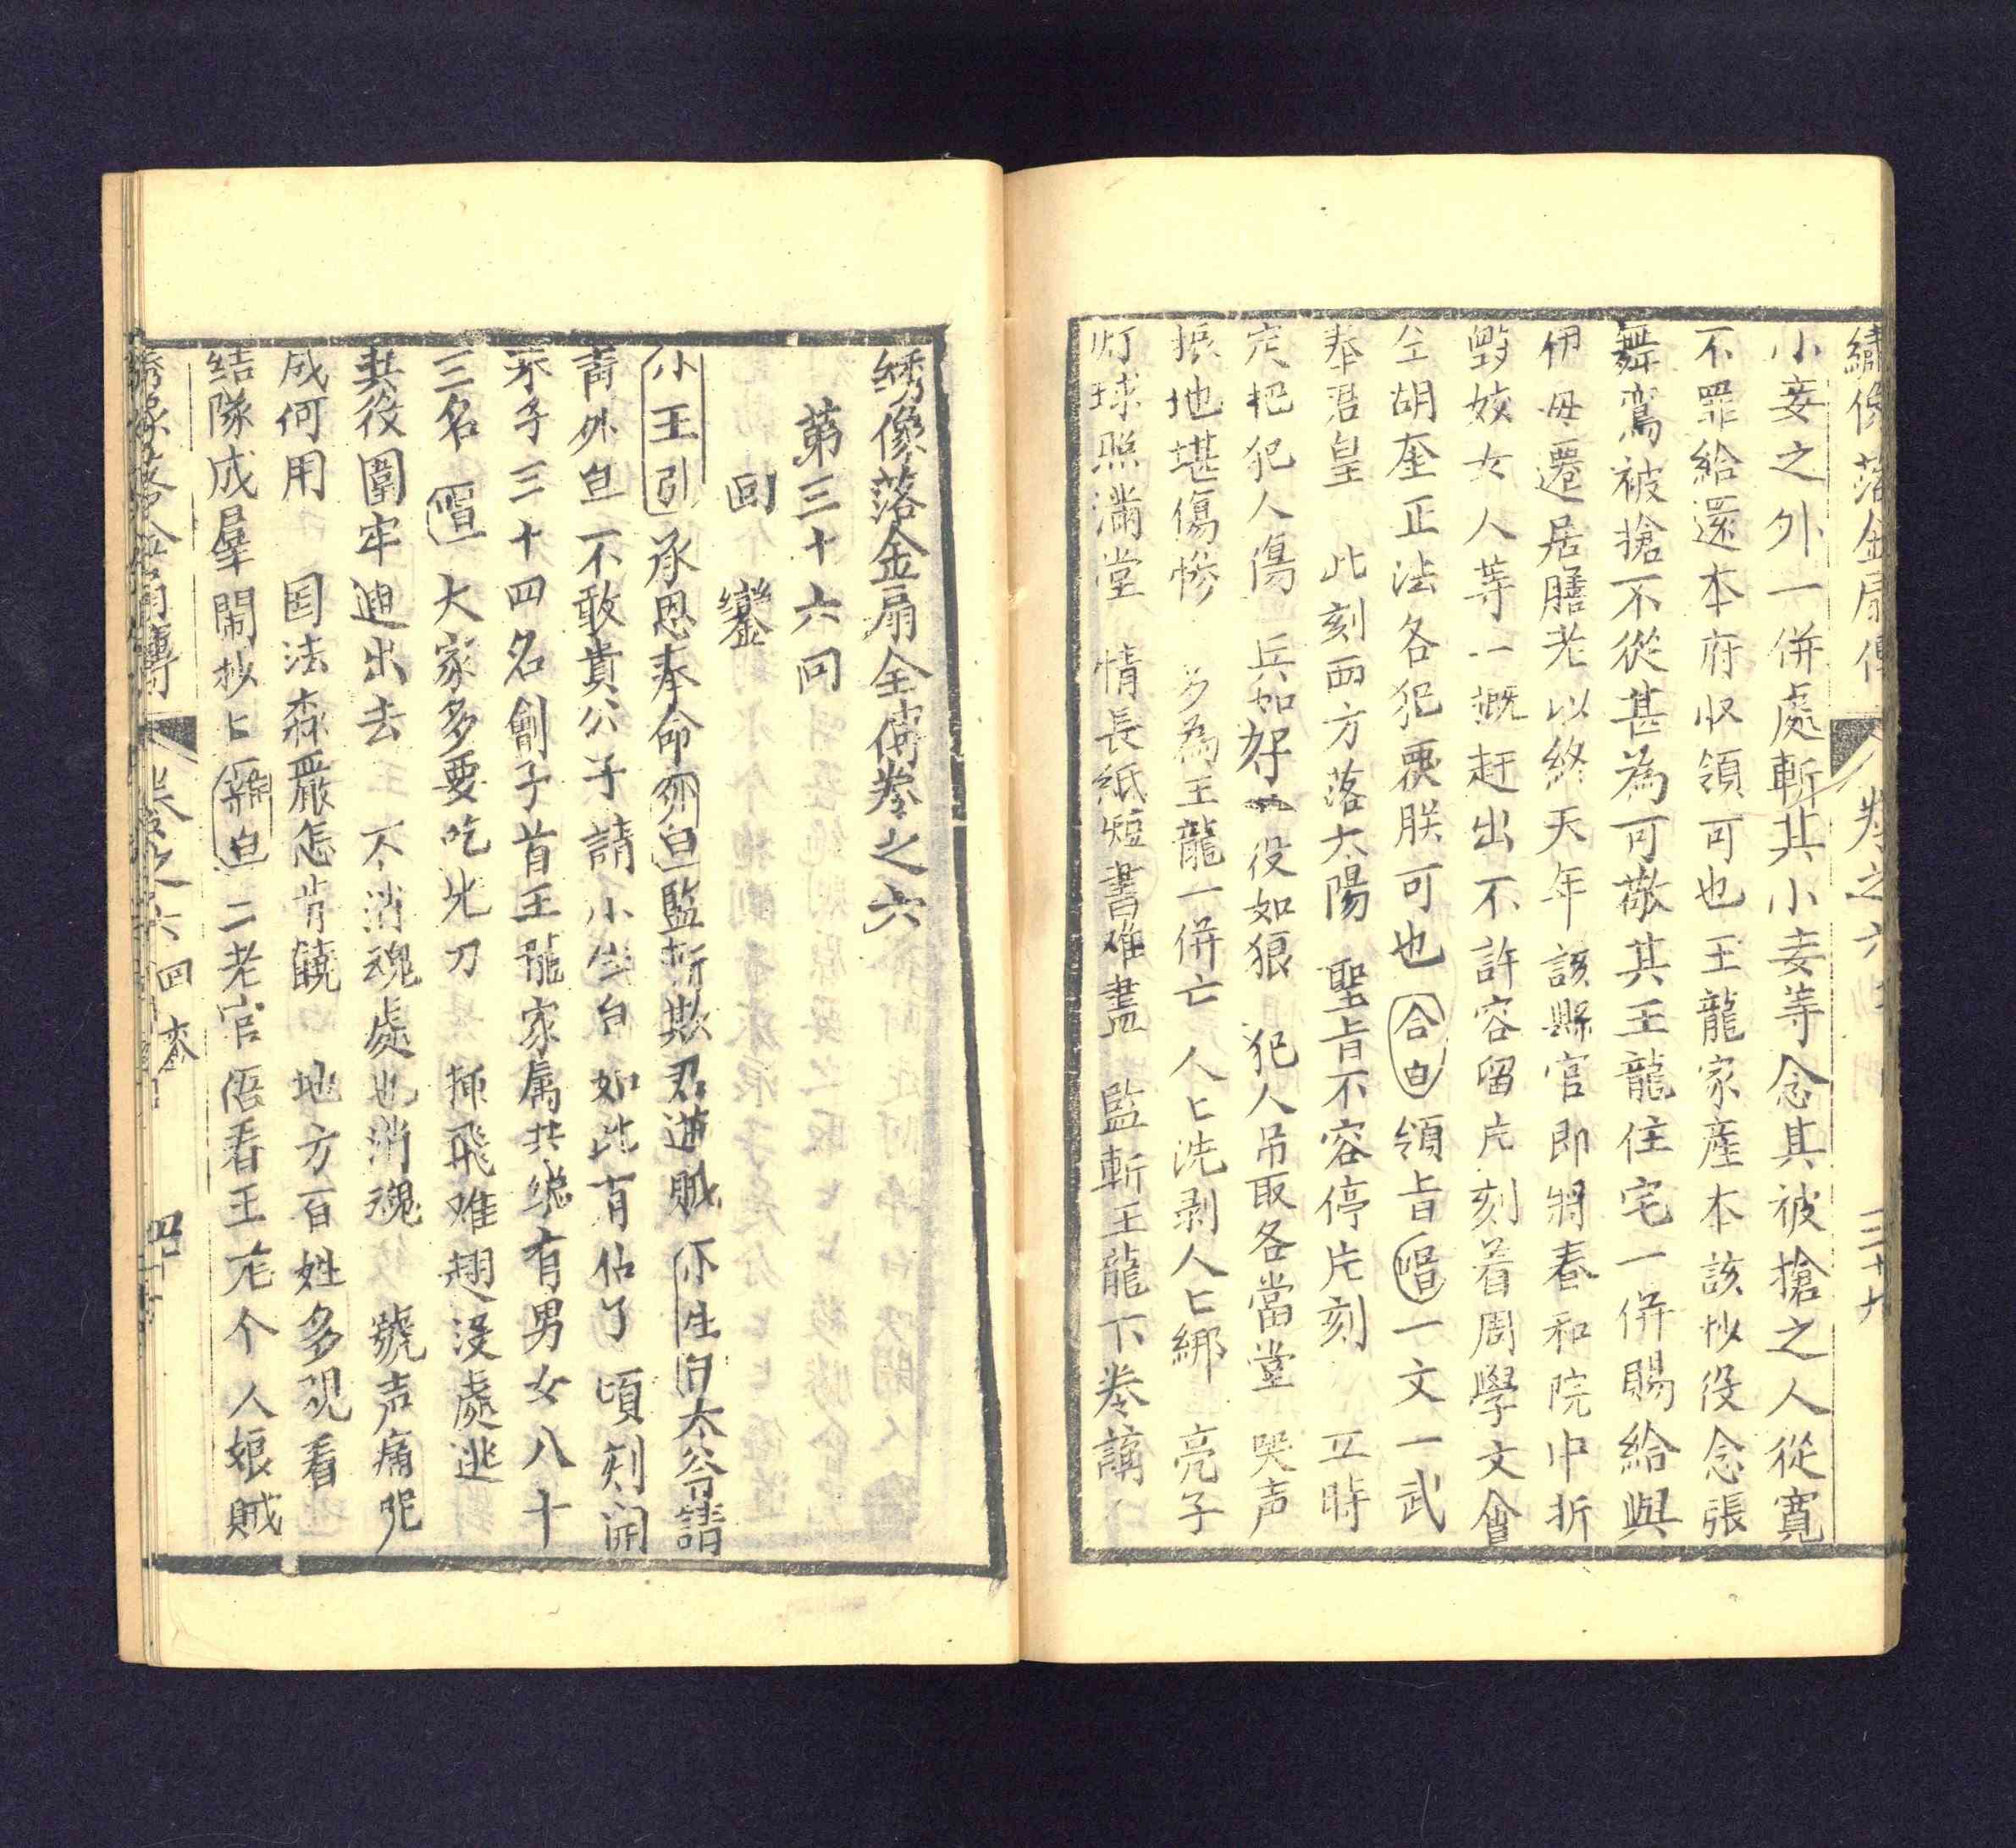 繡像落金扇傳 卷之六 三十九
小妾之外一併處斬其小妾等念其被搶之人從寬
不罪給還本府收領可也王龍家產本該抄役念張
舞鸞被搶不從甚為可敬其王龍住宅一併賜給與
伊母遷居膳老以終天年該縣官即將春和院中折
毀妓女人等一概赶出不許容留片刻着周學文會
仝胡奎正法各犯覆朕可也 合白 領旨 唱 一文一武
奉君皇 此刻西方落大陽 聖旨不容停片刻 立時
定把犯人傷 兵如好 役如狼 犯人吊取各當堂 哭声
振地堪傷慘 多為王龍一併亡 人匕洗剥人匕綁 亮子
灯球照滿堂 情長紙短書难盡 監斬王龍下卷講
绣像落金扇全傳卷之六
第三十六囘
回 鑾
小王引 承恩奉命 外白 監斬欺君逆贼 小生白 太爷請
青外白 不敢貴公子請小生白如此有佔了頃刻開
示手三十四名劊子首王龍家属共緫有男女八十
三名 唱 大家多要吃此刀 揷飛难翅没處逃
共役圍牢廹出去 不消魂處也消魂 號声痛呢
成何用 国法森嚴怎肯饒 地方百姓多观看
結隊成羣閙抄匕 白 二老官 看王 个人娘賊
绣像落金扇傳 卷之六 四 四十